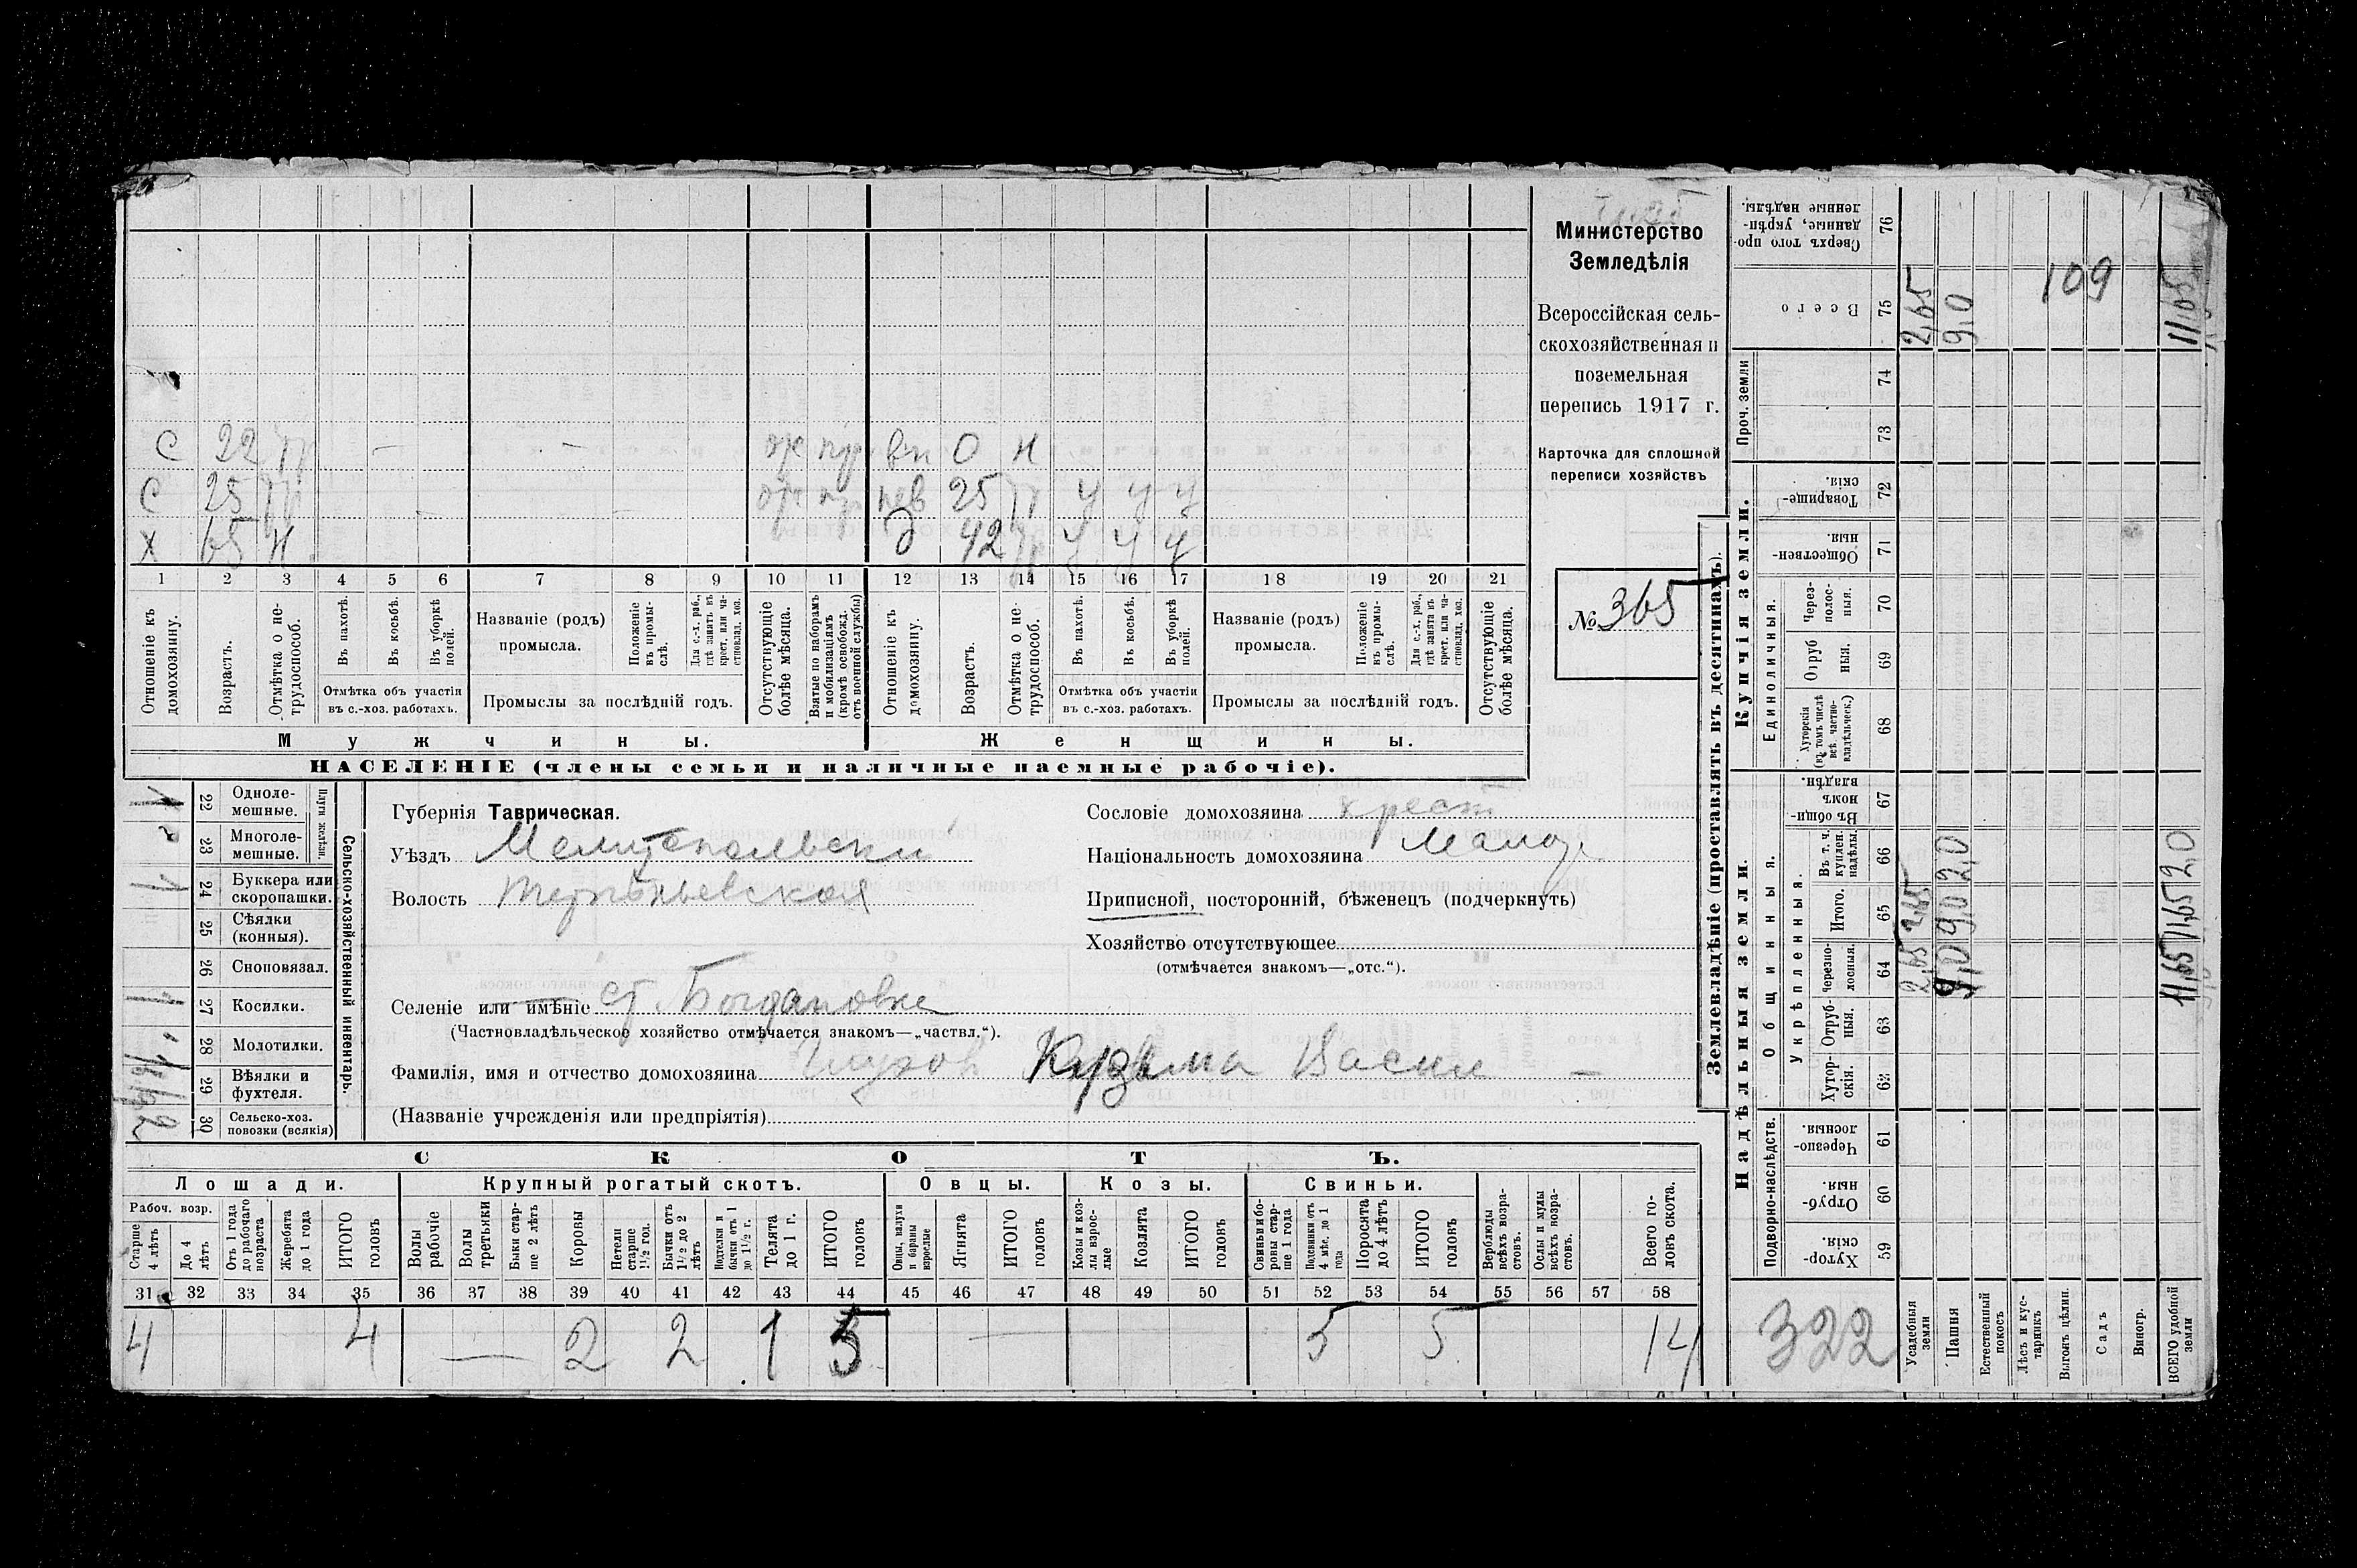 Министерство
Земледѣлія
Всероссійская сель-
скохозяйственная и
поземельная
перепись 1917 г.
Карточка для сплошной
переписи хозяйствъ
№ 365
С 22 — — вп О н
С 25 — — нев 25 у у у
Х 65 н. д 42 у у у
1 2 3 4 5 6 7 8 9 10 11 12 13 14 15 16 17 18 19 20 21
Отношеніе къ домохозяину.
Возрастъ.
Отмѣтка о не-трудоспособ.
Въ пахотѣ.
Въ косьбѣ.
Въ уборкѣ полей.
Отмѣтка объ участіи
въ с.-хоз. работахъ.
Названіе (родъ)
промысла.
Положеніе въ промы-слѣ.
Для с.-х. раб., гдѣ занятъ въ крест. или ча-стновлад. хоз.
Промыслы за послѣдній годъ.
Отсутствующіе болѣе мѣсяца.
Взятые по наборамъ и мобилизаціямъ (кромѣ освобожд. отъ военной службы)
Отношеніе къ домохозяину.
Возрастъ.
Отмѣтка о не-трудоспособ.
Въ пахотѣ.
Въ косьбѣ.
Въ уборкѣ полей.
Отмѣтка объ участіи
въ с.-хоз. работахъ.
Названіе (родъ)
промысла.
Положеніе въ промы-слѣ.
Для с.-х. раб., гдѣ занята въ крест. или ча-стновлад. хоз.
Промыслы за послѣдній годъ.
Отсутствующіе болѣе мѣсяца.
Мужчины.
Женщины.
НАСЕЛЕНІЕ (члены семьи и наличные наемные рабочіе).
Сельско-хозяйственный инвентарь.
Плуги желѣзн.
22 Одноле-мешные.
23 Многоле-мешные.
24 Буккера или скоропашки.
25 Сѣялки (конныя).
26 Сноповязал.
27 Косилки.
28 Молотилки.
29 Вѣялки и фухтеля.
30 Сельско-хоз. повозки (всякія)
Губернія Таврическая.
Уѣздъ Мелитопольски
Волость Терпѣньевская
Селеніе или имѣніе с. Богдановка
(Частновладѣльческое хозяйство отмѣчается знакомъ—„частвл.“).
Фамилія, имя и отчество домохозяина Глухов Кузьма Васил —
(Названіе учрежденія или предпріятія)
Сословіе домохозяина крест
Національность домохозяина Малор
Приписной, посторонній, бѣженецъ (подчеркнуть)
Хозяйство отсутствующее
(отмѣчается знакомъ—„отс.“).
СКОТЪ.
Лошади.
Крупный рогатый скотъ.
Овцы.
Козы.
Свиньи.
Рабоч. возр.
Старше 4 лѣтъ
До 4 лѣтъ
Отъ 1 года до рабочаго возраста
Жеребята до 1 года
ИТОГО головъ
Волы рабочіе
Волы третьяки
Быки стар-ше 2 лѣтъ
Коровы
Нетели старше 1½ год.
Бычки отъ 1½ до 2 лѣтъ
Подтелки и бычки отъ 1 до 1½ г.
Телята до 1 г.
ИТОГО головъ
Овцы, валухи и бараны взрослые
Ягнята
ИТОГО головъ
Козы и коз-лы взрос-лые
Козлята
ИТОГО головъ
Свиньи и бо-ровы стар-ше 1 года
Подсвинки отъ 4 мѣс. до 1 года
Поросята до 4 лѣтъ
ИТОГО головъ
Верблюды всѣхъ возра-стовъ.
Ослы и мулы всѣхъ возра-стовъ.
Всего го-ловъ скота.
31 32 33 34 35 36 37 38 39 40 41 42 43 44 45 46 47 48 49 50 51 52 53 54 55 56 57 58
4 4 — 2 2 1 5 — 5 5 14
Землевладѣніе (проставлять въ десятинахъ).
Купчія земли.
Надѣльныя земли.
Сверхъ того про-данные, укрѣп-ленные надѣлы. 76
Всего 75
Проч. земли 74 73
Товарище-скія. 72
Обществен-ныя. 71
Единоличныя.
Через-полос-ныя. 70
Отруб ныя. 69
Хуторскія (въ томъ числѣ всѣ частно-владѣльческ.) 68
Общинныя.
Въ общи-номъ владѣн. 67
Укрѣпленныя.
Въ т. ч. куплен. надѣлы. 66
Итого. 65
Черезпо-лосныя 64
Отруб-ныя. 63
Хутор-скія. 62
Подворно-наслѣдств.
Черезпо-лосныя. 61
Отруб-ныя. 60
Хутор-скія. 59
322
Усадебныя земли
Пашня
Естественный покосъ
Лѣсъ и кус-тарникъ
Выгонъ цѣлин.
Садъ
Виногр.
ВСЕГО удобной земли
2,65 2,65 2,65
9,0 9,0 2,0 9,0
109
11,65 11,65 2,0 11,65